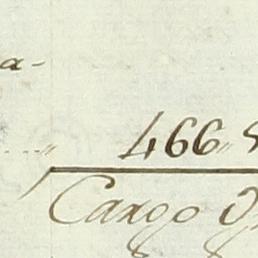 a-
466
Cargo